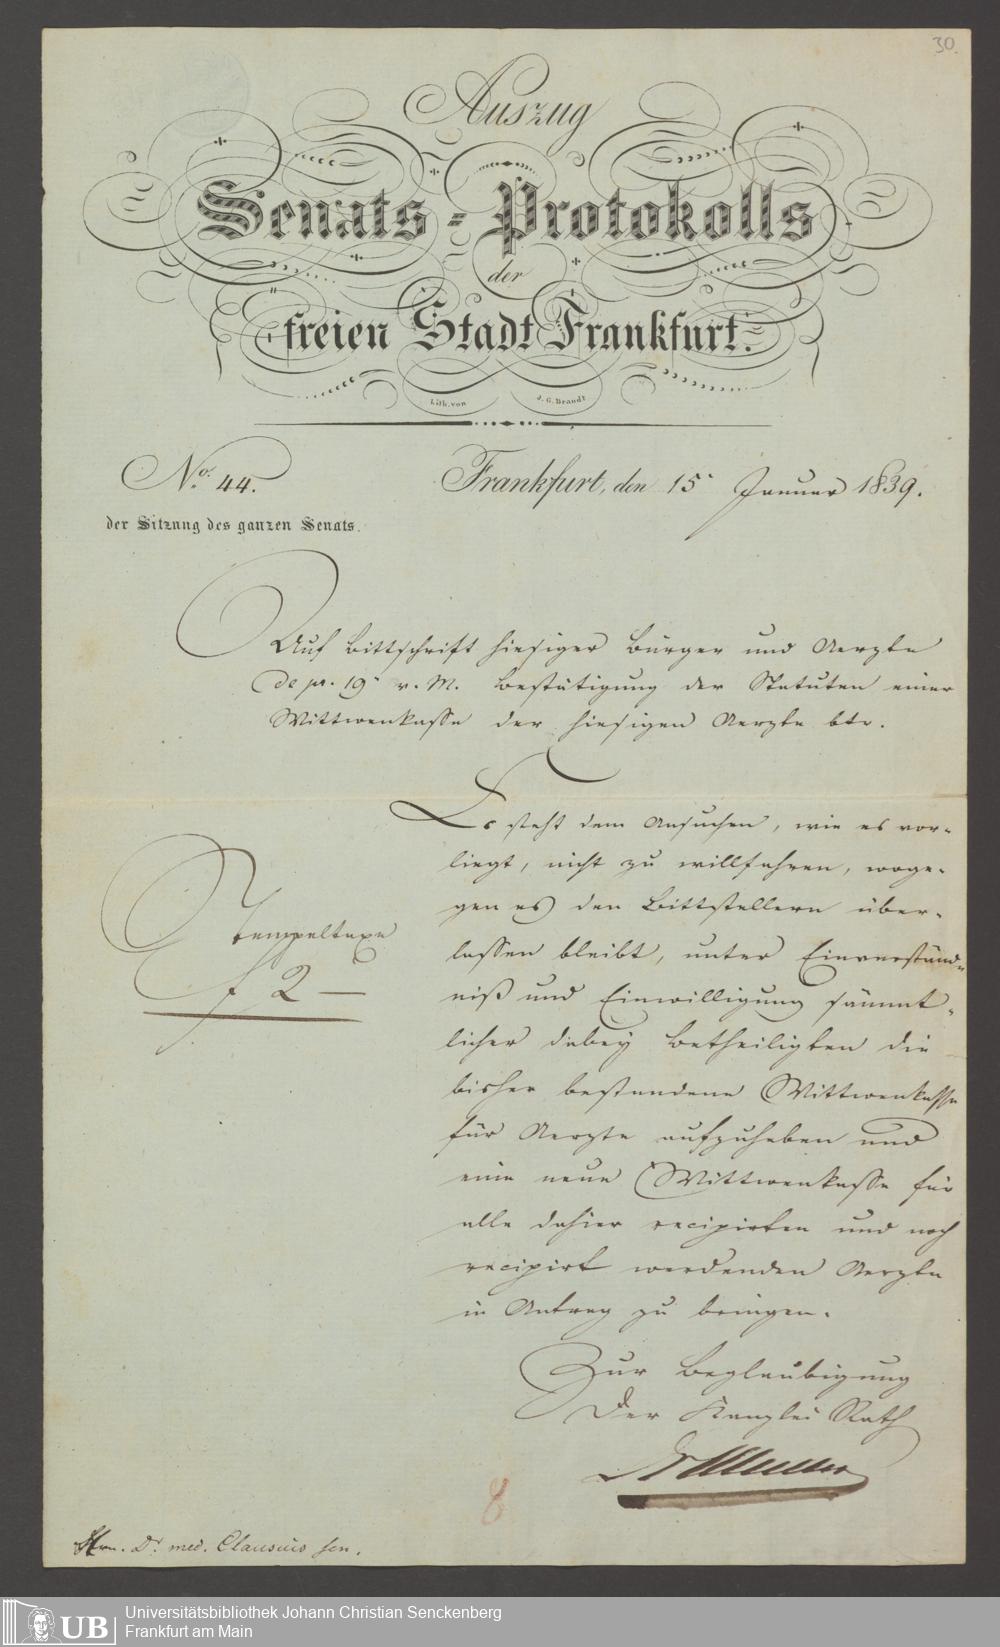 30.
Auszug
Senats-Protokolls
der
freien Stadt Frankfurt.
Lith. von J. G. Brandt
No. 44.
Frankfurt, den 15. Januar 1839.
der Sitzung des ganzen Senats.
Auf Bittschrift hiesiger Bürger und Aerzte
de pr. 19. v. M. Bestätigung der Statuten einer
Wittwenkasse der hiesigen Aerzte btr.
Es steht dem Ansuchen, wie es vor-
liegt, nicht zu willfahren, woge-
gen es den Bittstellern über-
lassen bleibt, unter Einverständ-
niß und Einwilligung sämmt-
licher dabey Betheiligten die
bisher bestandene Wittwenkasse
für Aerzte aufzuheben und
eine neue Wittwenkasse für
alle dahier recipirten und noch
recipirt werdenden Aerzte
in Antrag zu bringen.
Stempeltaxe
f 2 —
Zur Beglaubigung
Der Kanzlei Rath
Dr Müller
8
Hrn. Dr. med. Clausius sen.
UB
Universitätsbibliothek Johann Christian Senckenberg
Frankfurt am Main